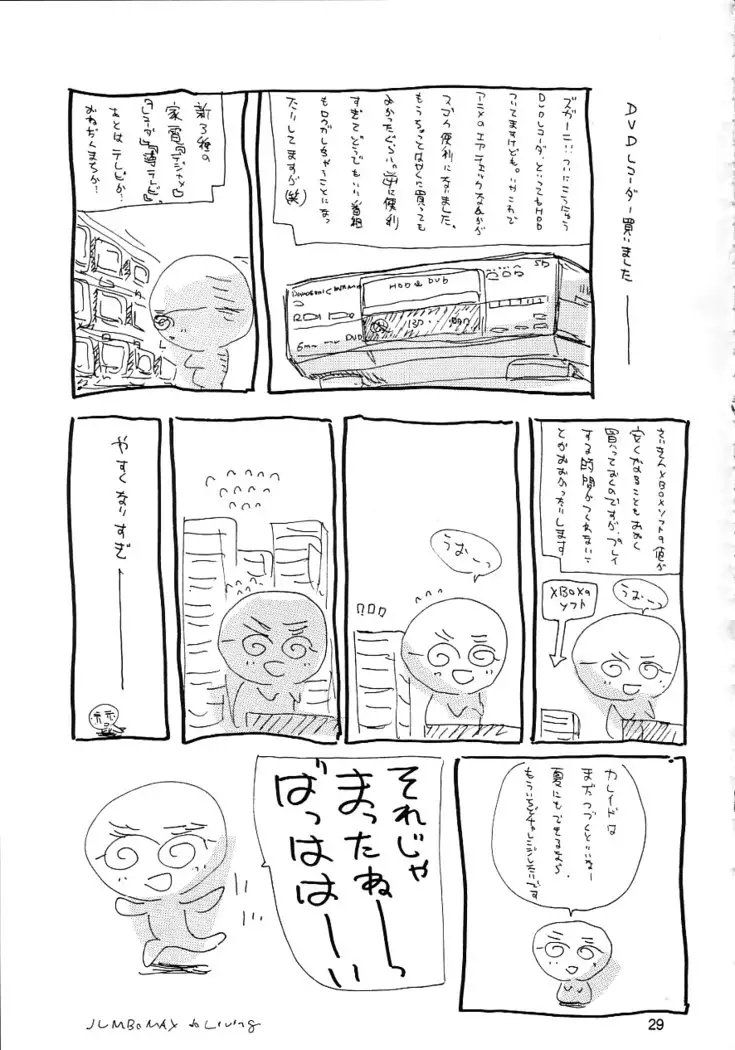 DVDレコーダー買いました
ズガーン…ついにこうにゅう
DVDレコーダーといってもHDD
ついてますけども。いやこれで
アニメのエアチェックなんかが
スゴイ便利になりました。
もうちょっとはやくに買っても
よかったぐらい。逆に便利
すぎてどうでもいい番組
もロクガしちゃうことになっ
たりしてますが(笑)
HDD & DVD
DVD
新3種の
家電の
あとはテレビか…
さいきんXBOXソフトの値が
安くなることもおおく
買ってくるのですが、プレイ
する時間がつくれないこ
とがおおかったりします
うおーっ
XBOXの
ソフト
うおーっ
やすくなりすぎ
カレイドは
まだつづくといいなー
もういちどチャレンジしたいです
それじゃ
まったねーっ
ばっははーい
JUMBOMAX to Living
29